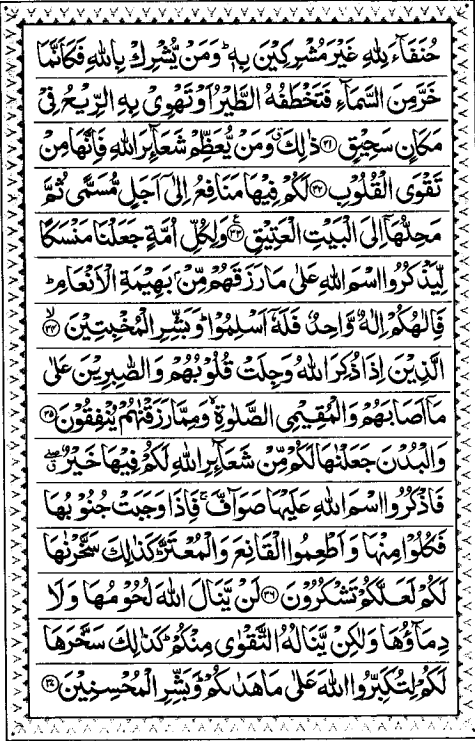 حُنَفَآءَ لِلّٰهِ غَيْرَ مُشْرِكِيْنَ بِهٖ ؕ وَمَنْ يُّشْرِكْ بِاللّٰهِ فَكَاَنَّمَا
خَرَّ مِنَ السَّمَآءِ فَتَخْطَفُهُ الطَّيْرُ اَوْ تَهْوِيْ بِهِ الرِّيْحُ فِيْ
مَكَانٍ سَحِيْقٍ ﴿۳۱﴾ ذٰلِكَ ۗ وَمَنْ يُّعَظِّمْ شَعَآئِرَ اللّٰهِ فَاِنَّهَا مِنْ
تَقْوَى الْقُلُوْبِ ﴿۳۲﴾ لَكُمْ فِيْهَا مَنَافِعُ اِلٰٓى اَجَلٍ مُّسَمًّى ثُمَّ
مَحِلُّهَاۤ اِلَى الْبَيْتِ الْعَتِيْقِ ﴿۳۳﴾ ع وَلِكُلِّ اُمَّةٍ جَعَلْنَا مَنْسَكًا
لِّيَذْكُرُوا اسْمَ اللّٰهِ عَلٰى مَا رَزَقَهُمْ مِّنْۢ بَهِيْمَةِ الْاَنْعَامِ ؕ
فَاِلٰهُكُمْ اِلٰهٌ وَّاحِدٌ فَلَهٗۤ اَسْلِمُوْا ؕ وَبَشِّرِ الْمُخْبِتِيْنَ ﴿۳۴﴾ ۙ
الَّذِيْنَ اِذَا ذُكِرَ اللّٰهُ وَجِلَتْ قُلُوْبُهُمْ وَالصّٰبِرِيْنَ عَلٰى
مَاۤ اَصَابَهُمْ وَالْمُقِيْمِي الصَّلٰوةِ ۙ وَمِمَّا رَزَقْنٰهُمْ يُنْفِقُوْنَ ﴿۳۵﴾
وَالْبُدْنَ جَعَلْنٰهَا لَكُمْ مِّنْ شَعَآئِرِ اللّٰهِ لَكُمْ فِيْهَا خَيْرٌ ۖ ق
فَاذْكُرُوا اسْمَ اللّٰهِ عَلَيْهَا صَوَآفَّ ۚ فَاِذَا وَجَبَتْ جُنُوْبُهَا
فَكُلُوْا مِنْهَا وَاَطْعِمُوا الْقَانِعَ وَالْمُعْتَرَّ ؕ كَذٰلِكَ سَخَّرْنٰهَا
لَكُمْ لَعَلَّكُمْ تَشْكُرُوْنَ ﴿۳۶﴾ لَنْ يَّنَالَ اللّٰهَ لُحُوْمُهَا وَلَا
دِمَآؤُهَا وَلٰكِنْ يَّنَالُهُ التَّقْوٰى مِنْكُمْ ؕ كَذٰلِكَ سَخَّرَهَا
لَكُمْ لِتُكَبِّرُوا اللّٰهَ عَلٰى مَا هَدٰىكُمْ ؕ وَبَشِّرِ الْمُحْسِنِيْنَ ﴿۳۷﴾